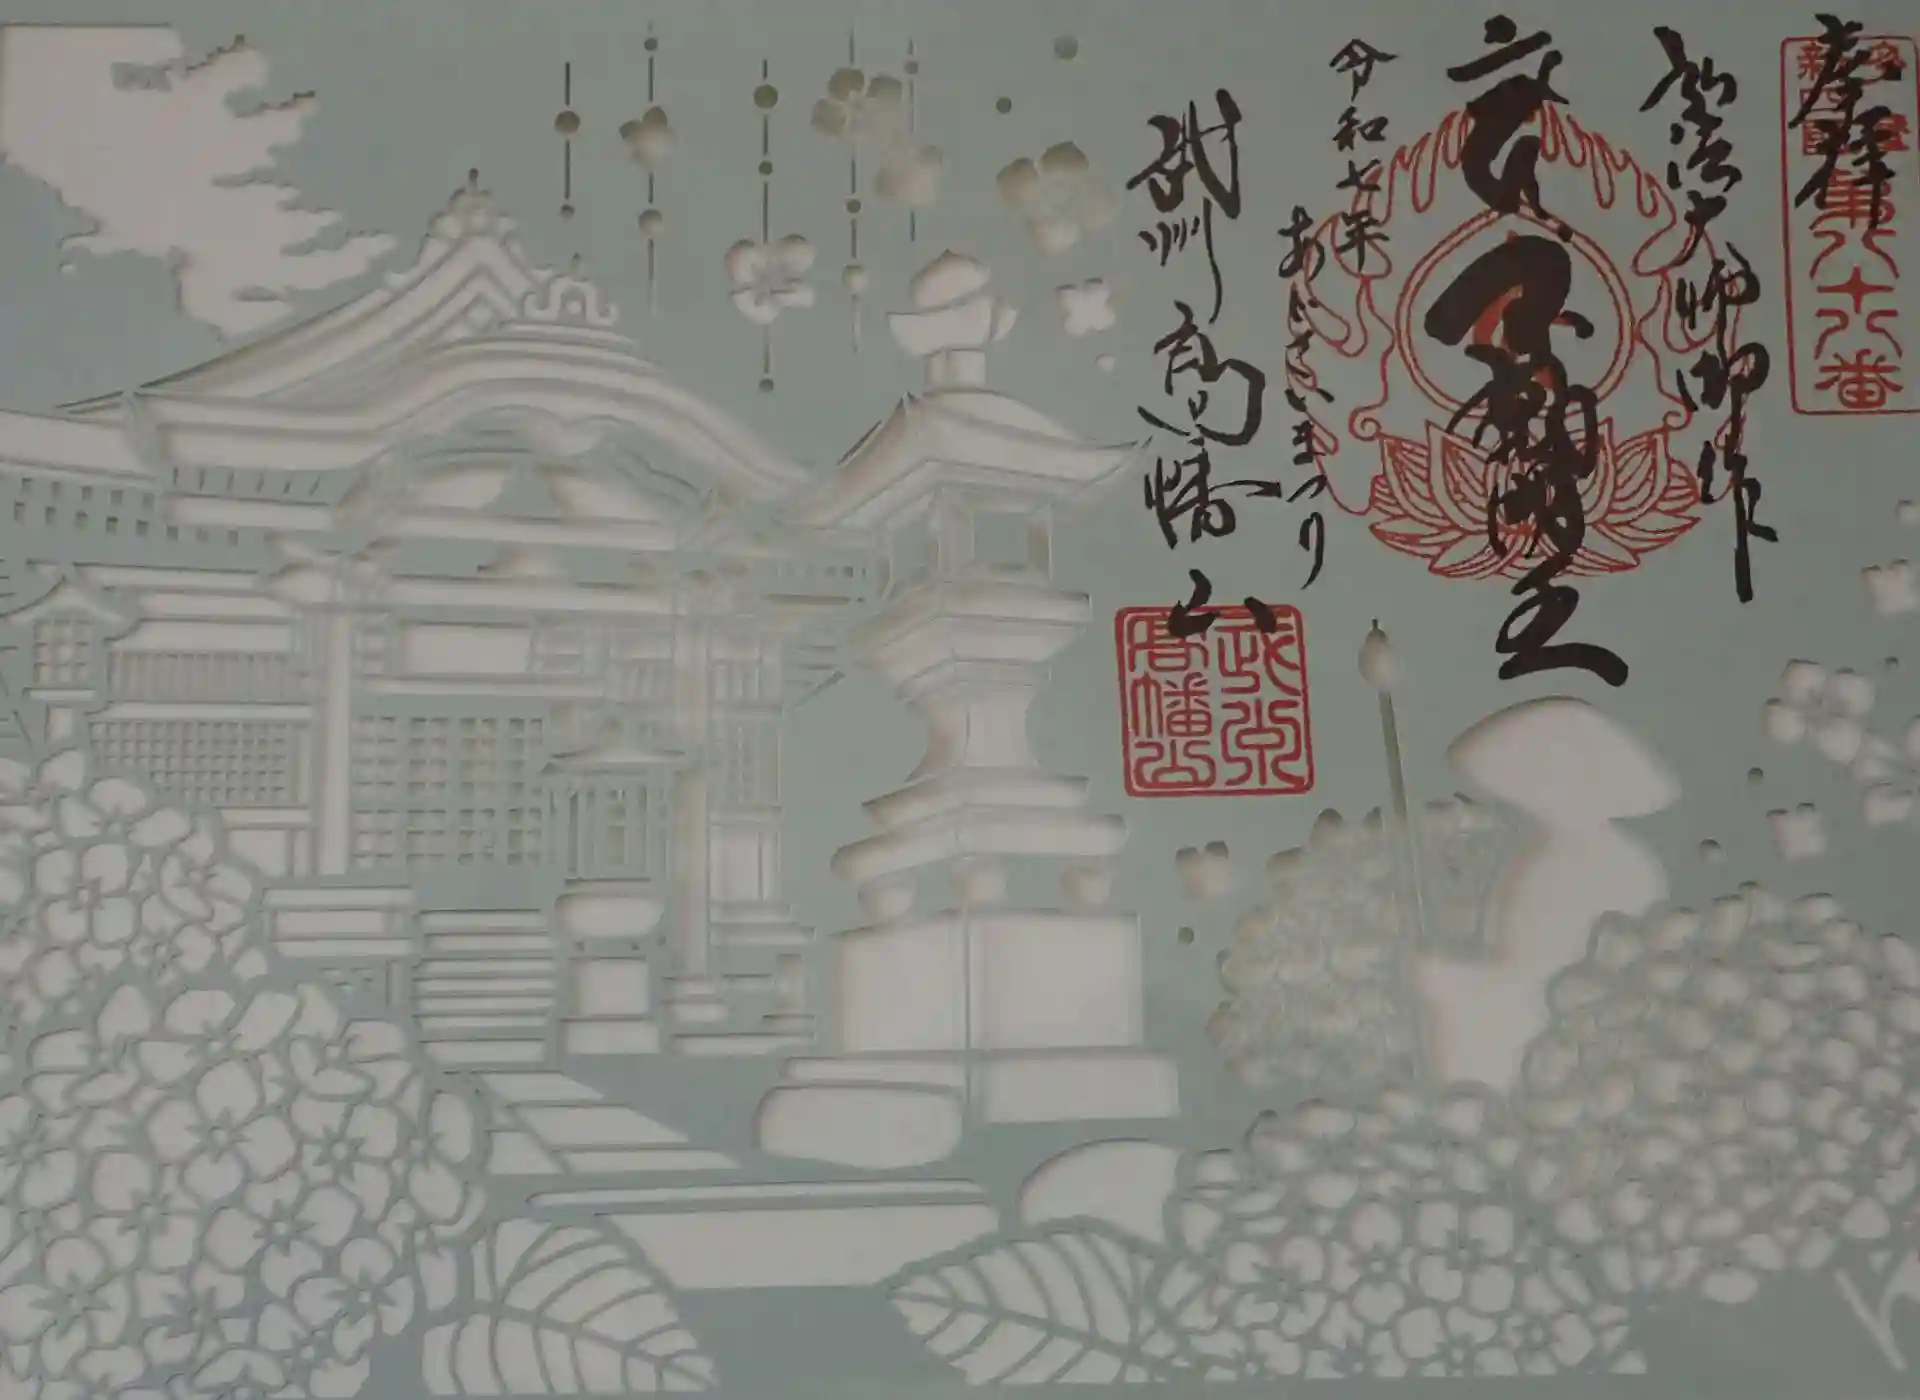 奉拝
多摩
新四国
第八十八番
弘法大師御作
不動明王
令和七年
あじさいまつり
武州高幡山
高幡山